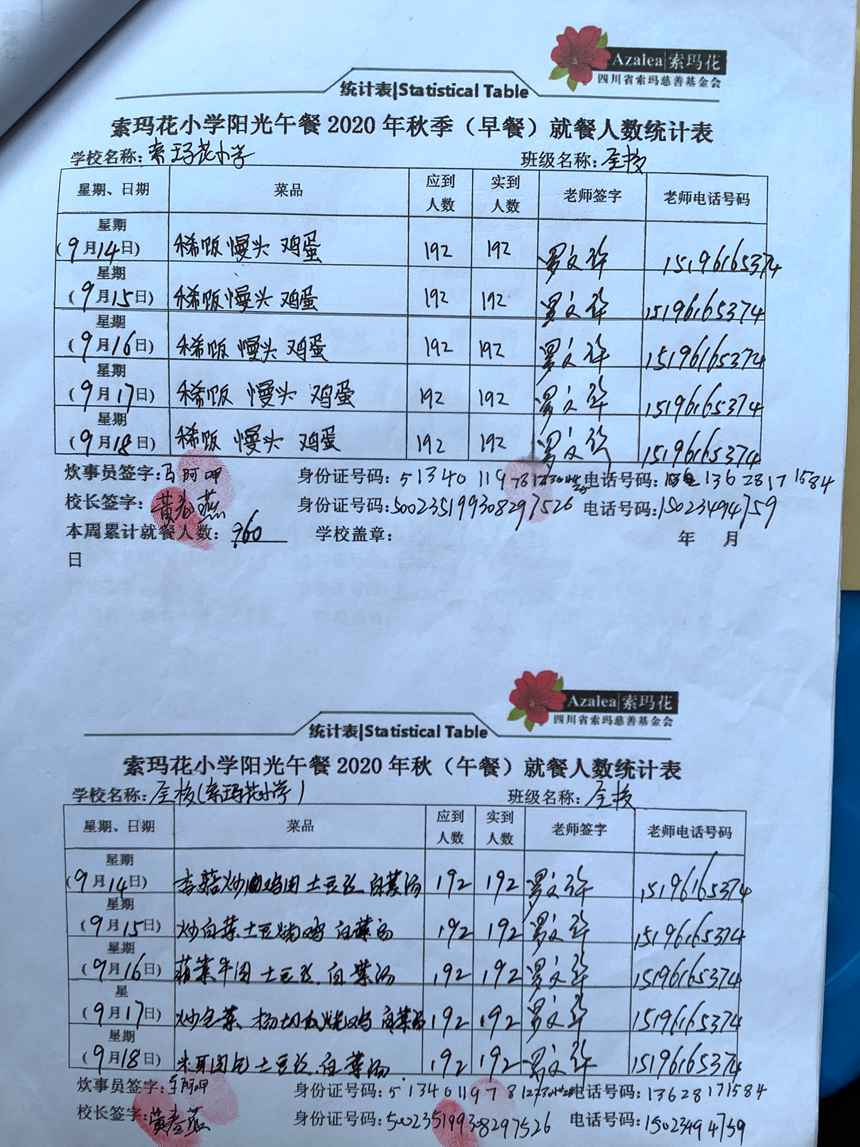 Azalea|索玛花
四川省索玛慈善基金会
统计表|Statistical Table
索玛花小学阳光午餐 2020 年秋季（早餐）就餐人数统计表
学校名称：索玛花小学 班级名称：全校
星期、日期 菜品 应到人数 实到人数 老师签字 老师电话号码
星期
(9月14日) 稀饭 馒头 鸡蛋 192 192 罗文华 15196165374
星期
(9月15日) 稀饭 馒头 鸡蛋 192 192 罗文华 15196165374
星期
(9月16日) 稀饭 馒头 鸡蛋 192 192 罗文华 15196165374
星期
(9月17日) 稀饭 馒头 鸡蛋 192 192 罗文华 15196165374
星期
(9月18日) 稀饭 馒头 鸡蛋 192 192 罗文华 15196165374
炊事员签字： 阿呷 身份证号码： 电话号码：13628171584
校长签字： 身份证号码：500235199308297526 电话号码：15023494759
本周累计就餐人数：960 学校盖章： 年 月
日
Azalea|索玛花
四川省索玛慈善基金会
统计表|Statistical Table
索玛花小学阳光午餐 2020 年秋（午餐）就餐人数统计表
学校名称：全校(索玛花小学) 班级名称：全校
星期、日期 菜品 应到人数 实到人数 老师签字 老师电话号码
星期
(9月14日) 土豆丝 白菜汤 192 192 罗文华 15196165374
星期
(9月15日) 炒白菜 土豆烧鸡 白菜汤 192 192 罗文华 15196165374
星期
(9月16日) 牛肉 土豆丝 白菜汤 192 192 罗文华 15196165374
星
(9月17日) 烧鸡 192 192 罗文华 15196165374
星期
(9月18日) 木耳肉 土豆丝 白菜汤 192 192 罗文华 15196165374
炊事员签字： 阿呷 身份证号码： 电话号码：13628171584
校长签字： 身份证号码：500235199308297526 电话号码：15023494759